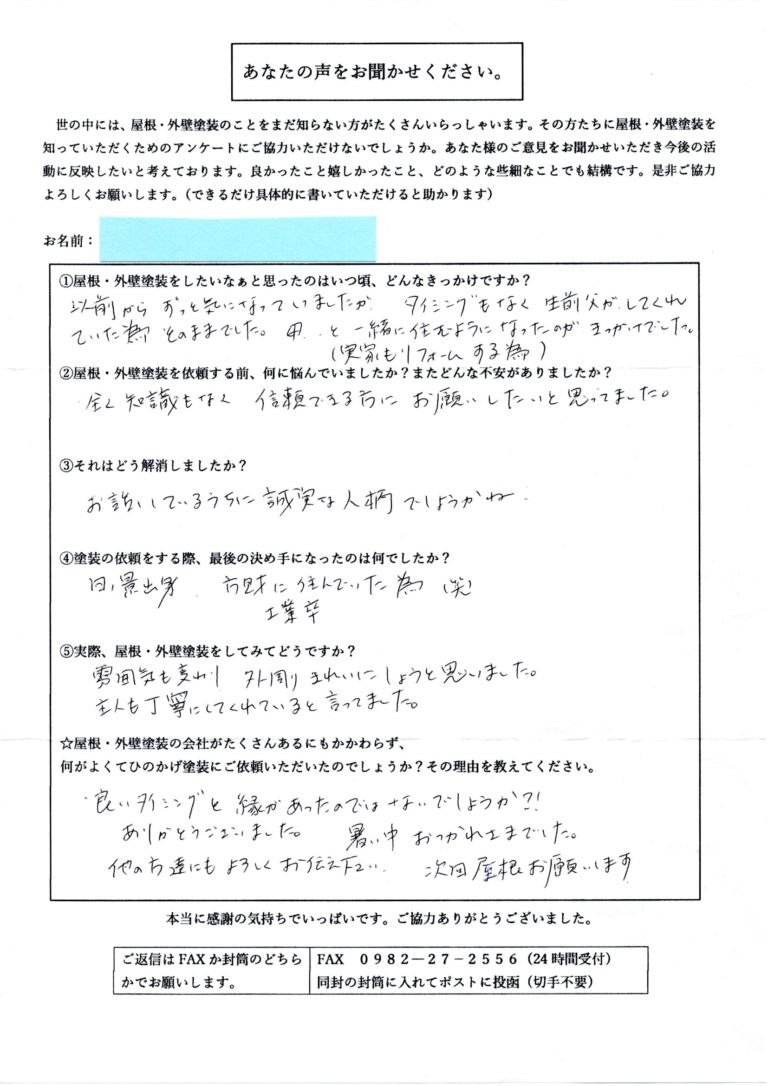 あなたの声をお聞かせください。
世の中には、屋根・外壁塗装のことをまだ知らない方がたくさんいらっしゃいます。その方たちに屋根・外壁塗装を
知っていただくためのアンケートにご協力いただけないでしょうか。あなた様のご意見をお聞かせいただき今後の活
動に反映したいと考えております。良かったこと嬉しかったこと、どのような些細なことでも結構です。是非ご協力
よろしくお願いします。（できるだけ具体的に書いていただけると助かります）
お名前：
①屋根・外壁塗装をしたいなぁと思ったのはいつ頃、どんなきっかけですか？
以前から ずっと気になっていましたが タイミングもなく 生前父が してくれ
ていた為 そのままでした。 と 一緒に住むようになったのが きっかけでした。
（実家もリフォームする為）
②屋根・外壁塗装を依頼する前、何に悩んでいましたか？またどんな不安がありましたか？
全く知識もなく 信頼できる方に お願いしたいと思ってました。
③それはどう解消しましたか？
お話ししているうちに 誠実な人柄 でしょうかね
④塗装の依頼をする際、最後の決め手になったのは何でしたか？
日ノ影出身 方財に住んでいた為 (笑)
工業卒
⑤実際、屋根・外壁塗装をしてみてどうですか？
雰囲気も変わり 外周り きれいにしようと思いました。
主人も丁寧にしてくれていると言ってました。
☆屋根・外壁塗装の会社がたくさんあるにもかかわらず、
何がよくてひのかげ塗装にご依頼いただいたのでしょうか？その理由を教えてください。
良いタイミングと 縁があったのではないでしょうか?!
ありがとうございました。 暑い中 おつかれさまでした。
他の方達にも よろしくお伝え下さい 次回屋根お願いします
本当に感謝の気持ちでいっぱいです。ご協力ありがとうございました。
ご返信は FAX か封筒のどちら
かでお願いします。
FAX ０９８２－２７－２５５６（24 時間受付）
同封の封筒に入れてポストに投函（切手不要）